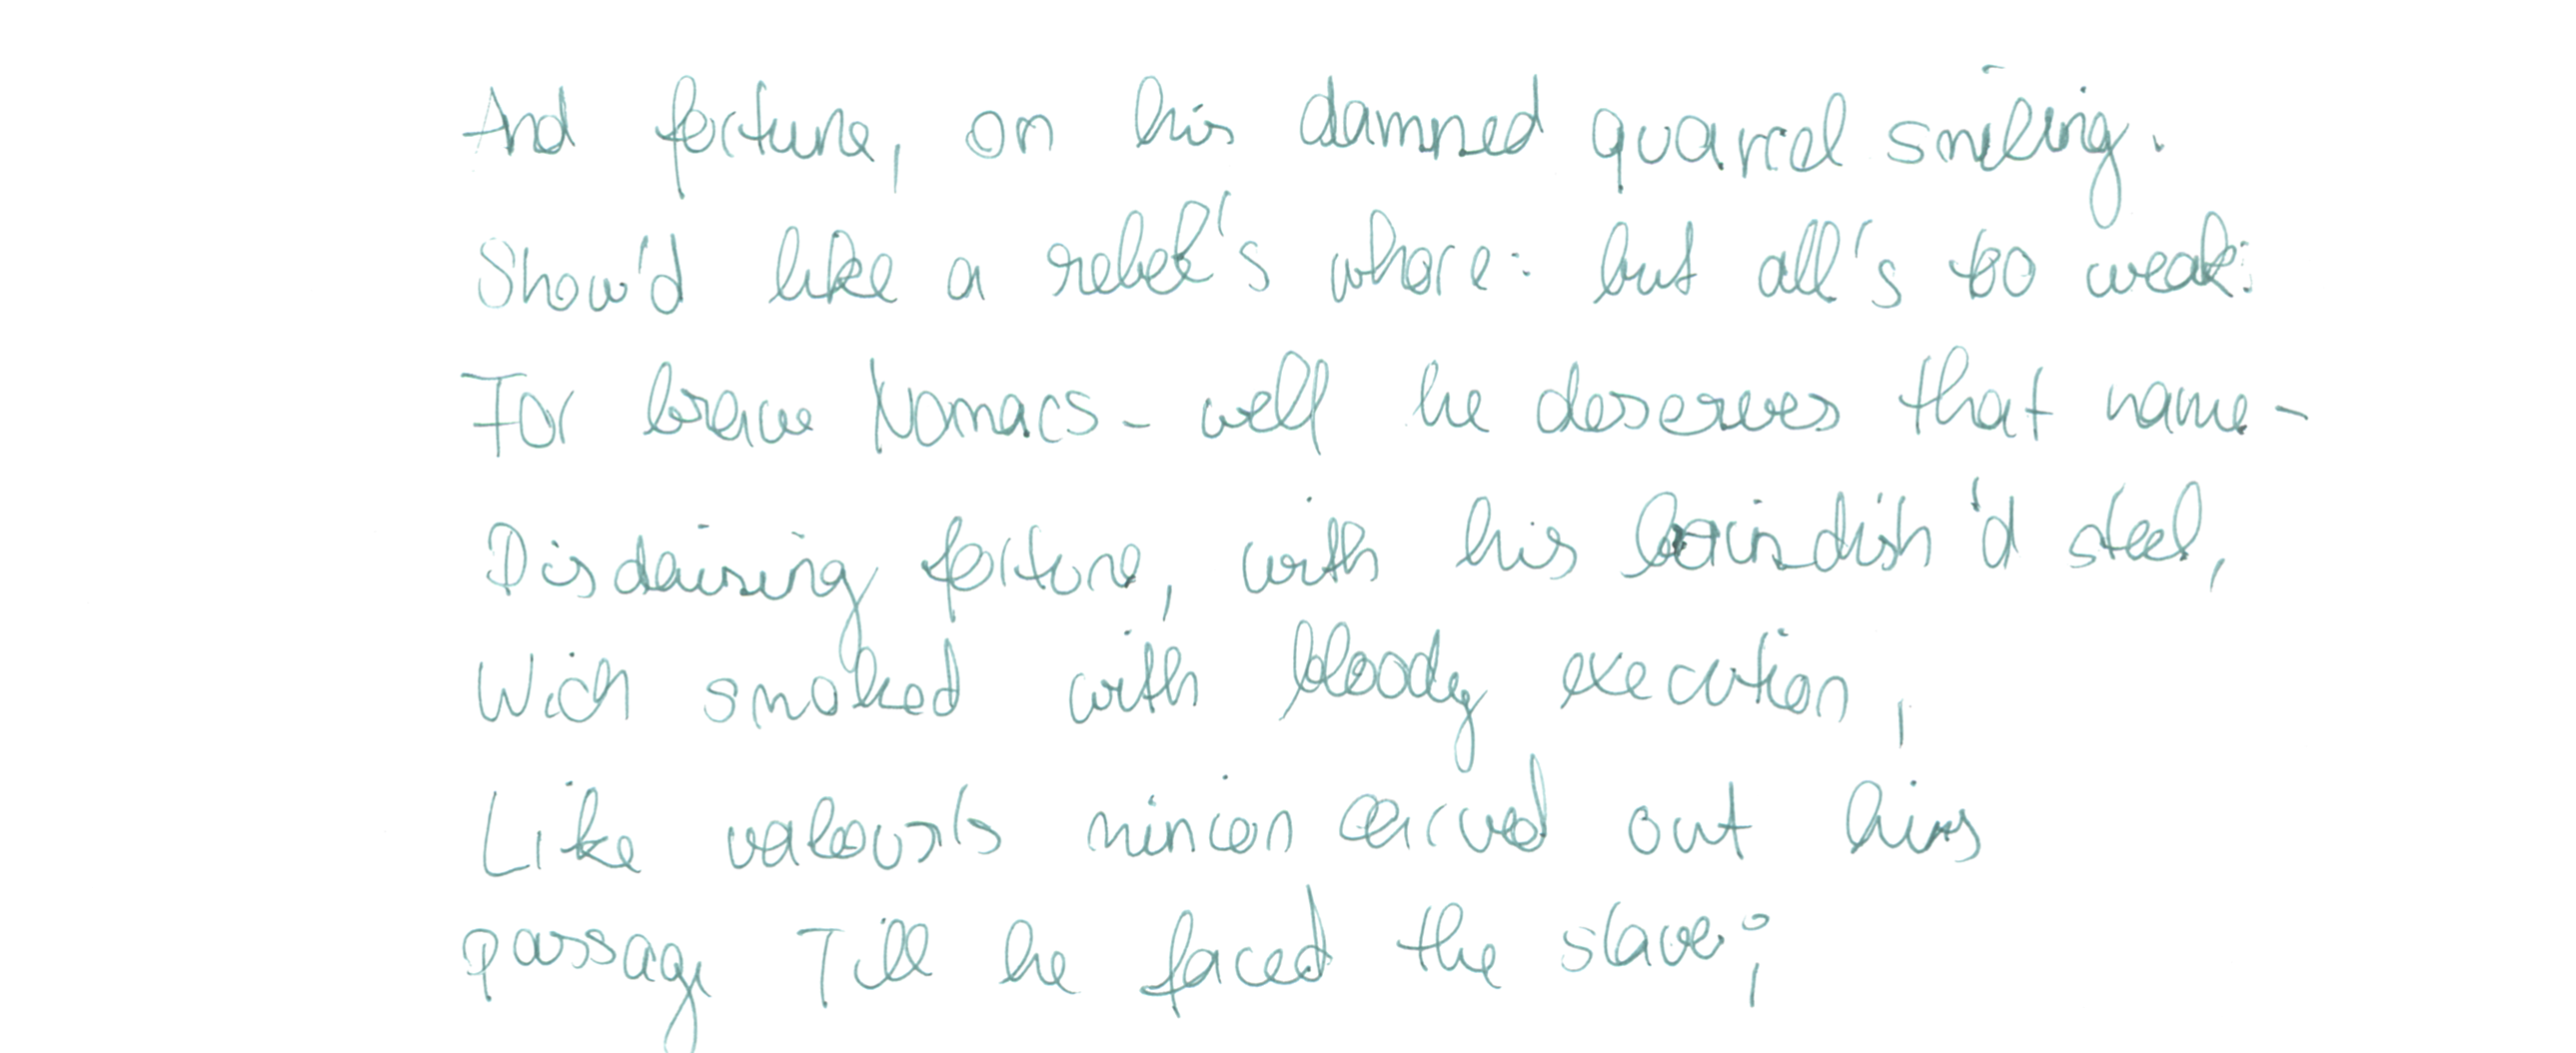 And fortune, on his damned quarrel smiling.
Show'd like a rebel's whore: but all's too weak:
For brave Nomacs - well he deserves that name -
Disdaining fortune, with his braindish'd steel,
Wich smoked with bloody execution,
Like valour's minion carved out hims
passag Till he faced the slave;